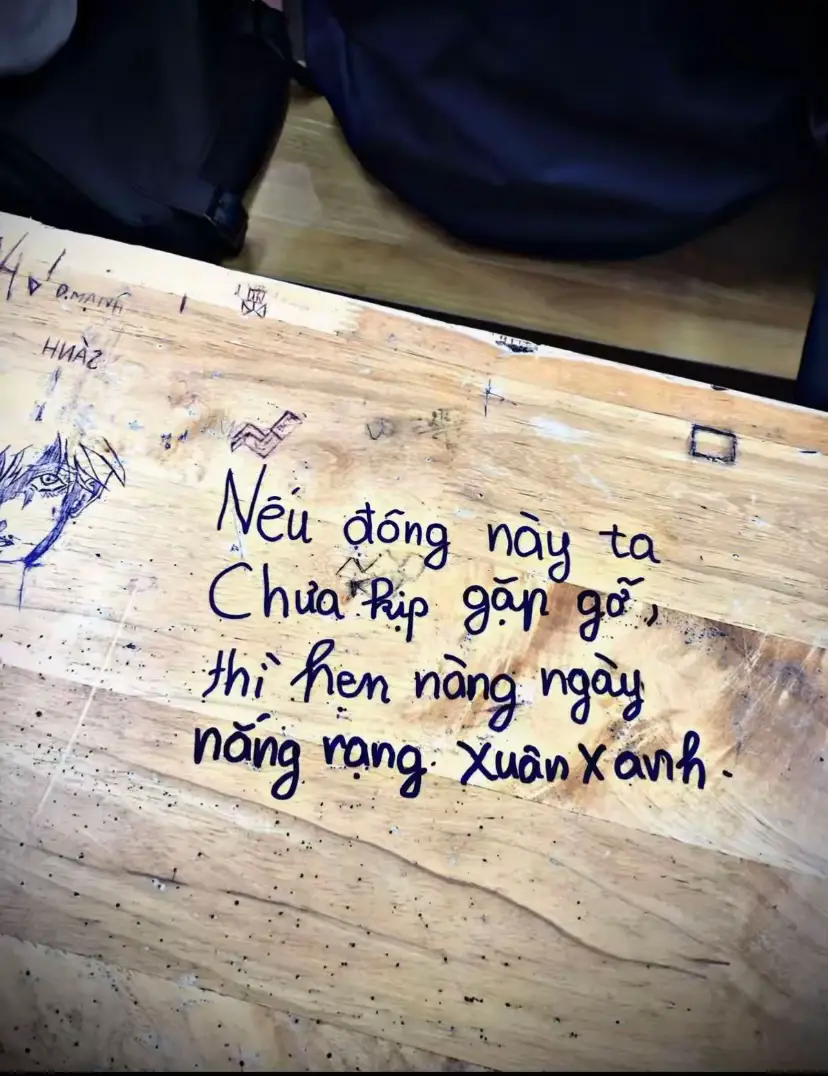 Đ.MẠNH
SÀNH
Nếu đông này ta
Chưa kịp gặp gỡ,
thì hẹn nàng ngày
nắng rạng. Xuân Xanh.